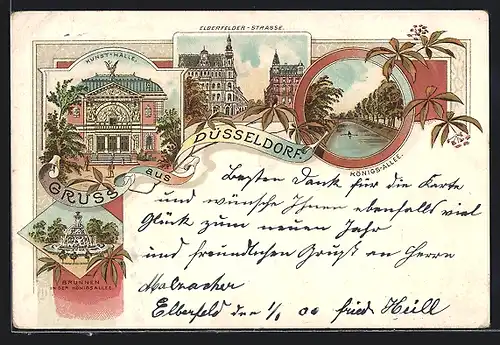 ELBERFELDER-STRASSE.
KUNST-HALLE.
GRUSS aus DÜSSELDORF.
KÖNIGS-ALLEE.
BRUNNEN
IN DER KÖNIGSALLEE.
Besten Dank für die Karte
und wünsche Ihnen ebenfalls viel
Glück zum neuen Jahr
und freundlichen Gruß an Herrn
Elberfeld den 1/1 00